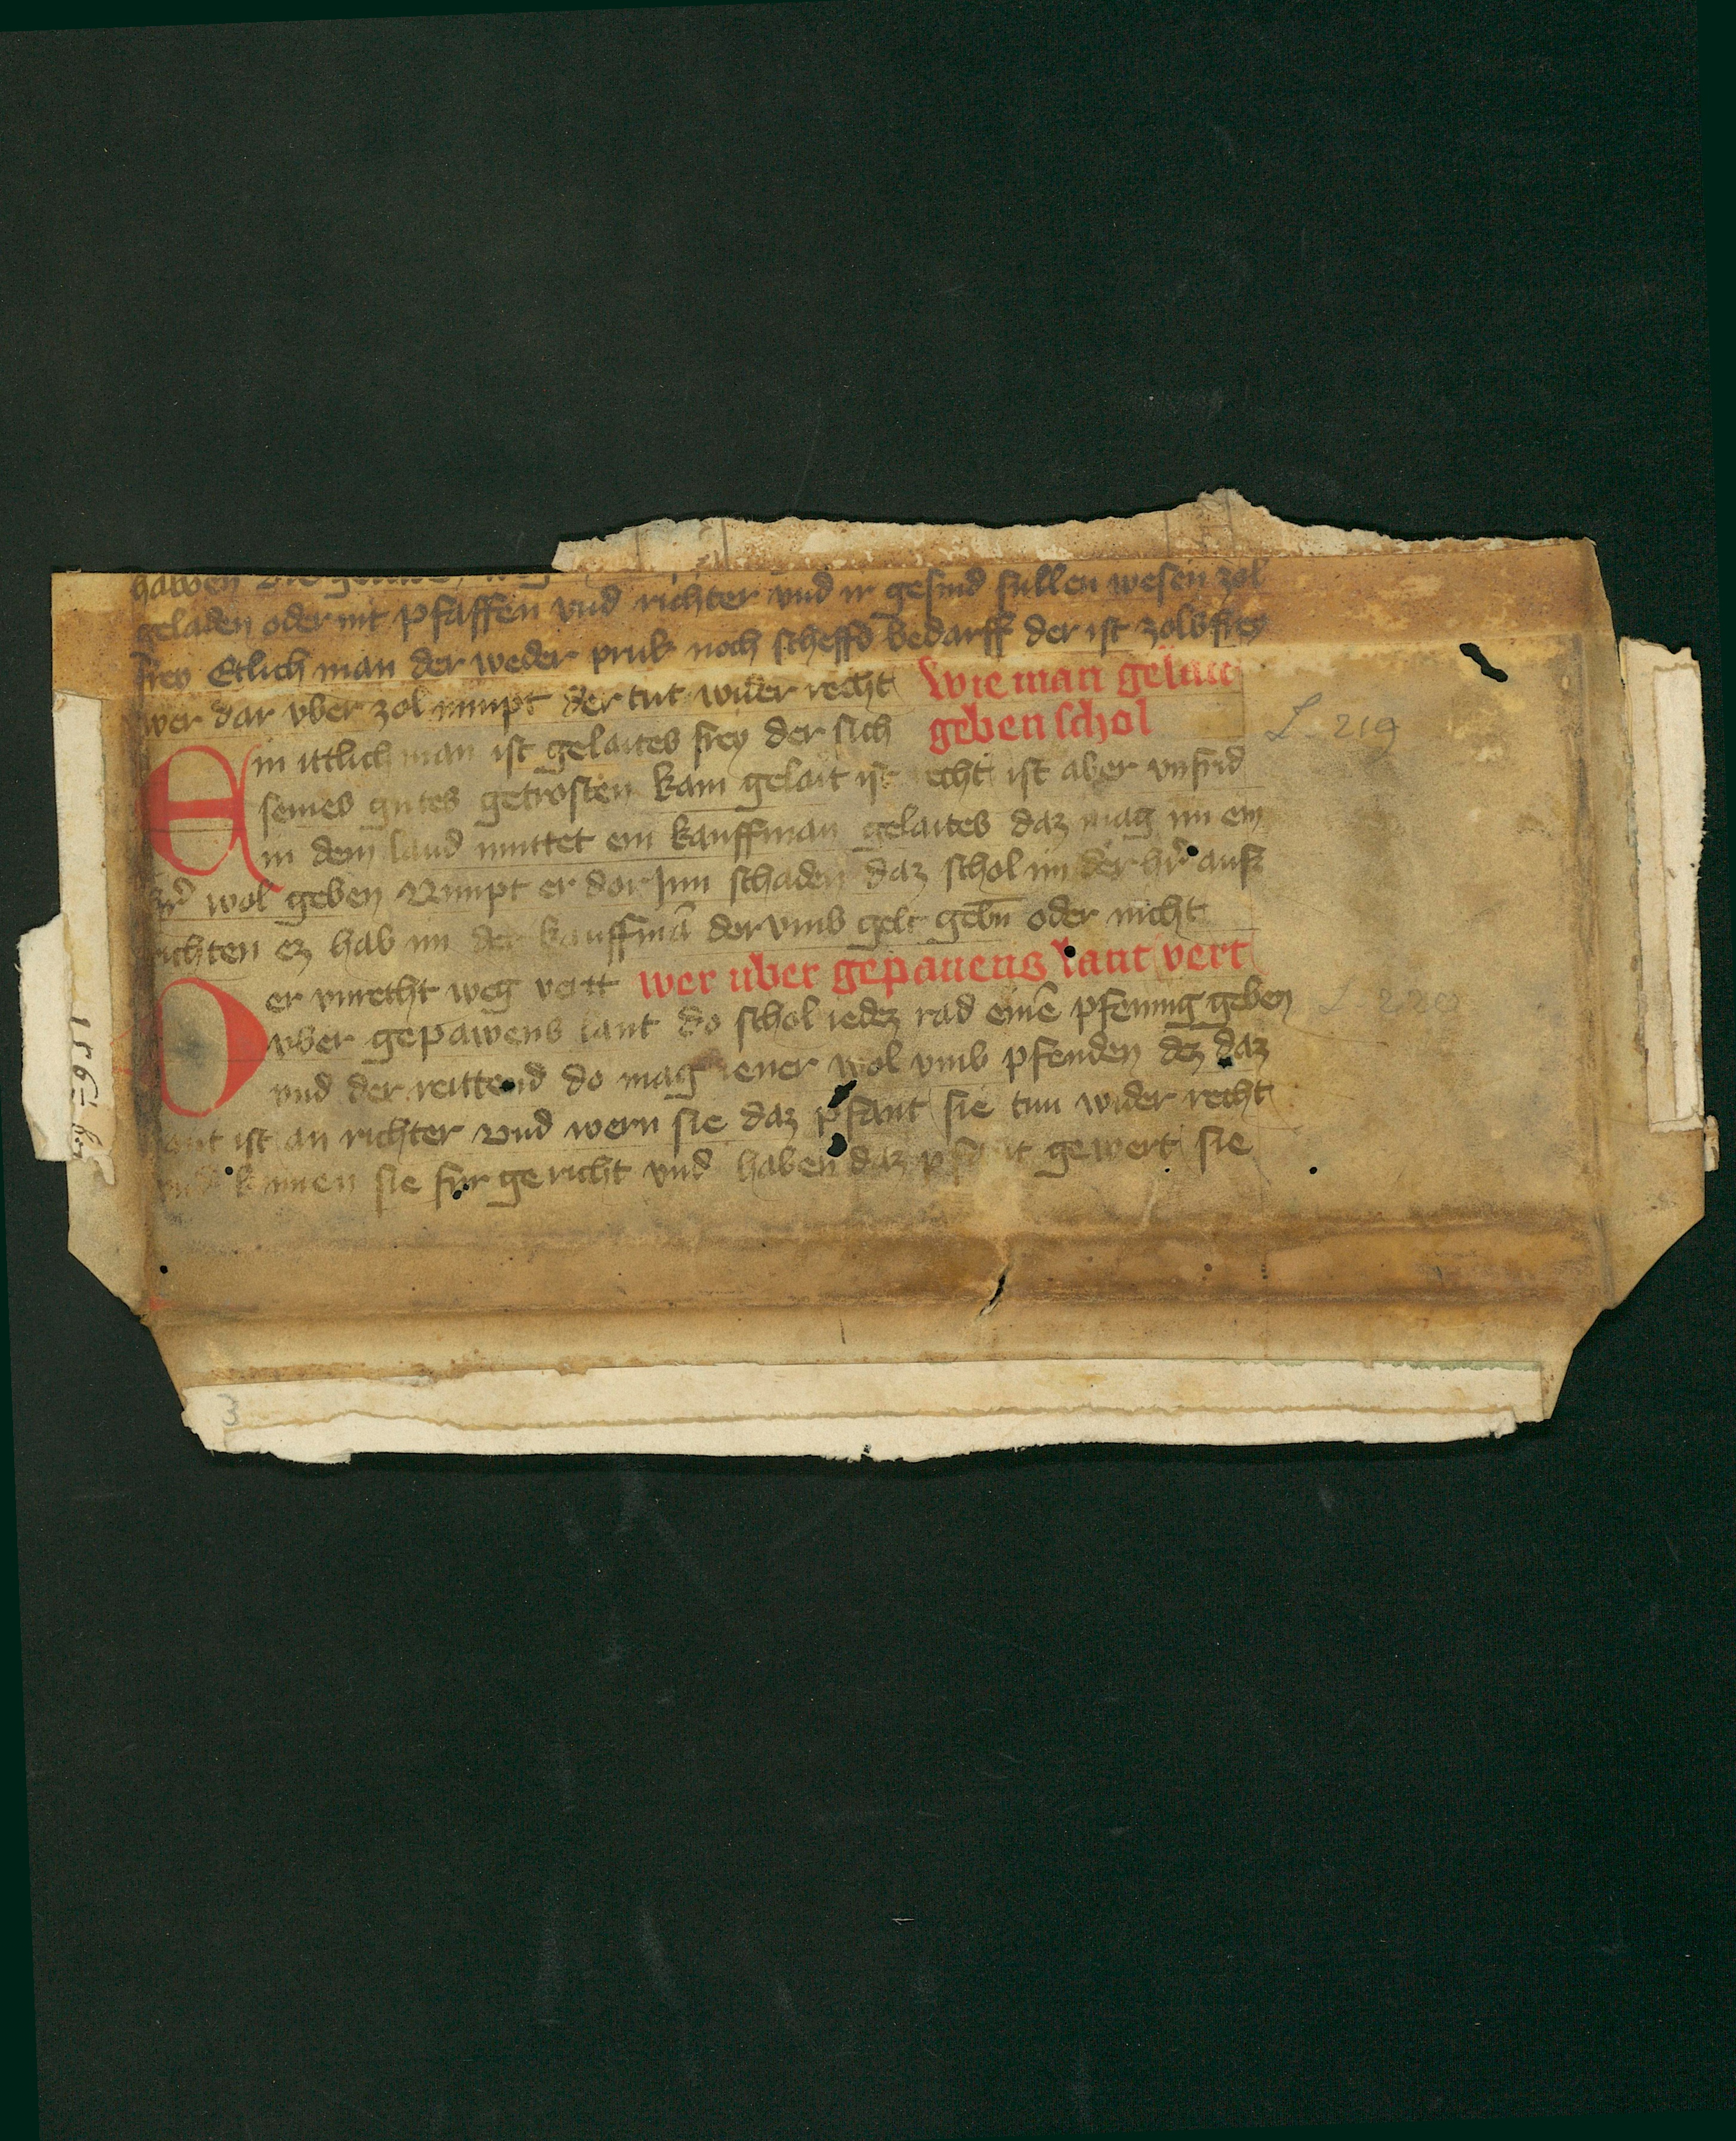 hawen
geladen oder nit pfaffen vnd richter vnd ir gesind sullen wesen zol
frey Etlich man der weder pruk noch scheffd bedarff der ist zolbfrey
wer dar vber zol nimpt der tut wider recht Wie man gelait
geben schol
L. 219
Ein ittlich man ist gelaites frey der sich
seines gutes getrosten kain gelait ist echt ist aber vnfrid
in dem land muttet ein kauffman gelaites daz mag im ein
hr̄ wol geben Nimpt er dor Inn schaden daz schol im der hr̄ auß
richten ez hab im der kauffmā der vmb gelt gebn̄ oder nicht
wer uber gepauens lant vert
Der vnrecht weg vertt
vber gepawens lant do schol iedez rad einē pfennig geben
L. 220
vnd der reittend do mag iener wol vmb pfenden dez daz
lant ist an richter vnd wern sie daz pfant sie tun wider recht
kumen sie fur gericht vnd haben daz gewert sie
3